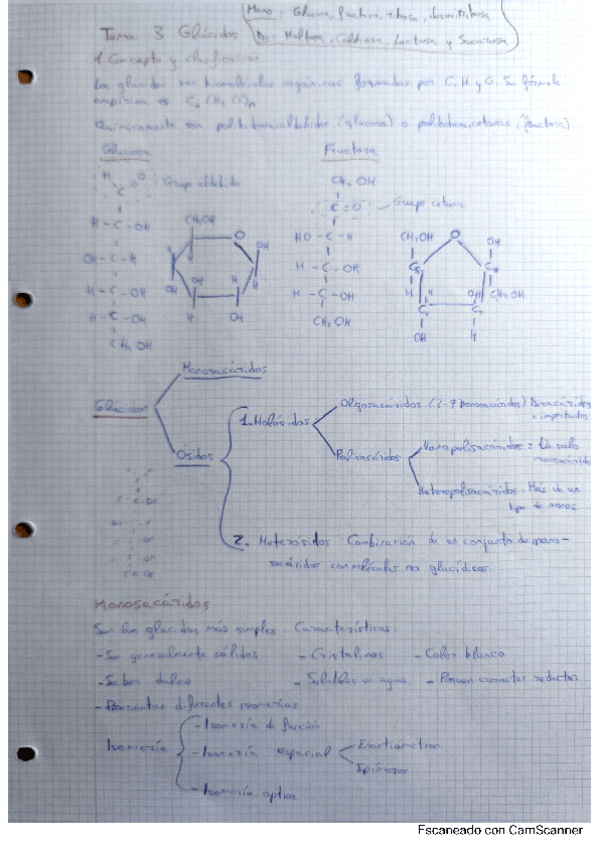 Mono: Glucosa, fructosa, ribosa, desoxirribosa
Di: Maltosa, Celobiosa, Lactosa y Sacarosa
Tema 3 Glúcidos
1. Concepto y clasificación
Los glúcidos son biomoléculas orgánicas formadas por C, H y O. Su fórmula
empírica es Cn(H2O)n
Químicamente son polihidroxialdehídos (glucosa) o polihidroxicetonas (fructosa)
Glucosa Fructosa
Grupo aldehído
CH2OH
Grupo cetona
Glúcidos
Monosacáridos
Ósidos
1. Holósidos
Oligosacáridos (2-9 monosacáridos) Disacáridos
+ importantes
Polisacáridos
Homopolisacáridos = Un solo
monosacárido
Heteropolisacáridos. Más de un
tipo de monos.
2. Heterósidos Combinación de un conjunto de mono-
sacáridos con moléculas no glucídicas.
Monosacáridos
Son los glúcidos más simples. Características:
- Son generalmente sólidos - Cristalinos - Color blanco
- Sabor dulce - Solubles en agua - Poseen carácter reductor
- Presentan diferentes isomerías
Isomería
- Isomería de función
- Isomería espacial
- Isomería óptica
Escaneado con CamScanner